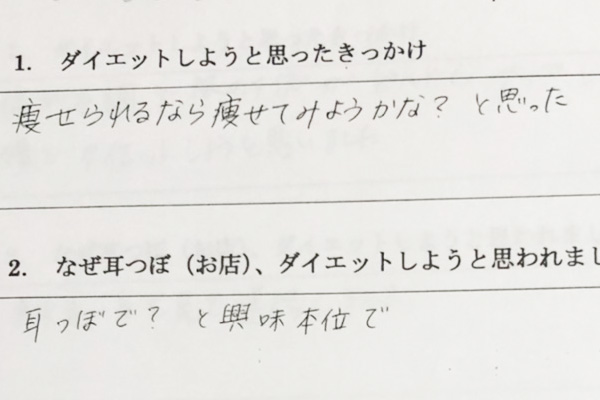 1. ダイエットしようと思ったきっかけ
痩せられるなら痩せてみようかな？と思った
2. なぜ耳つぼ（お店）、ダイエットしようと思われまし
耳つぼで？と興味本位で